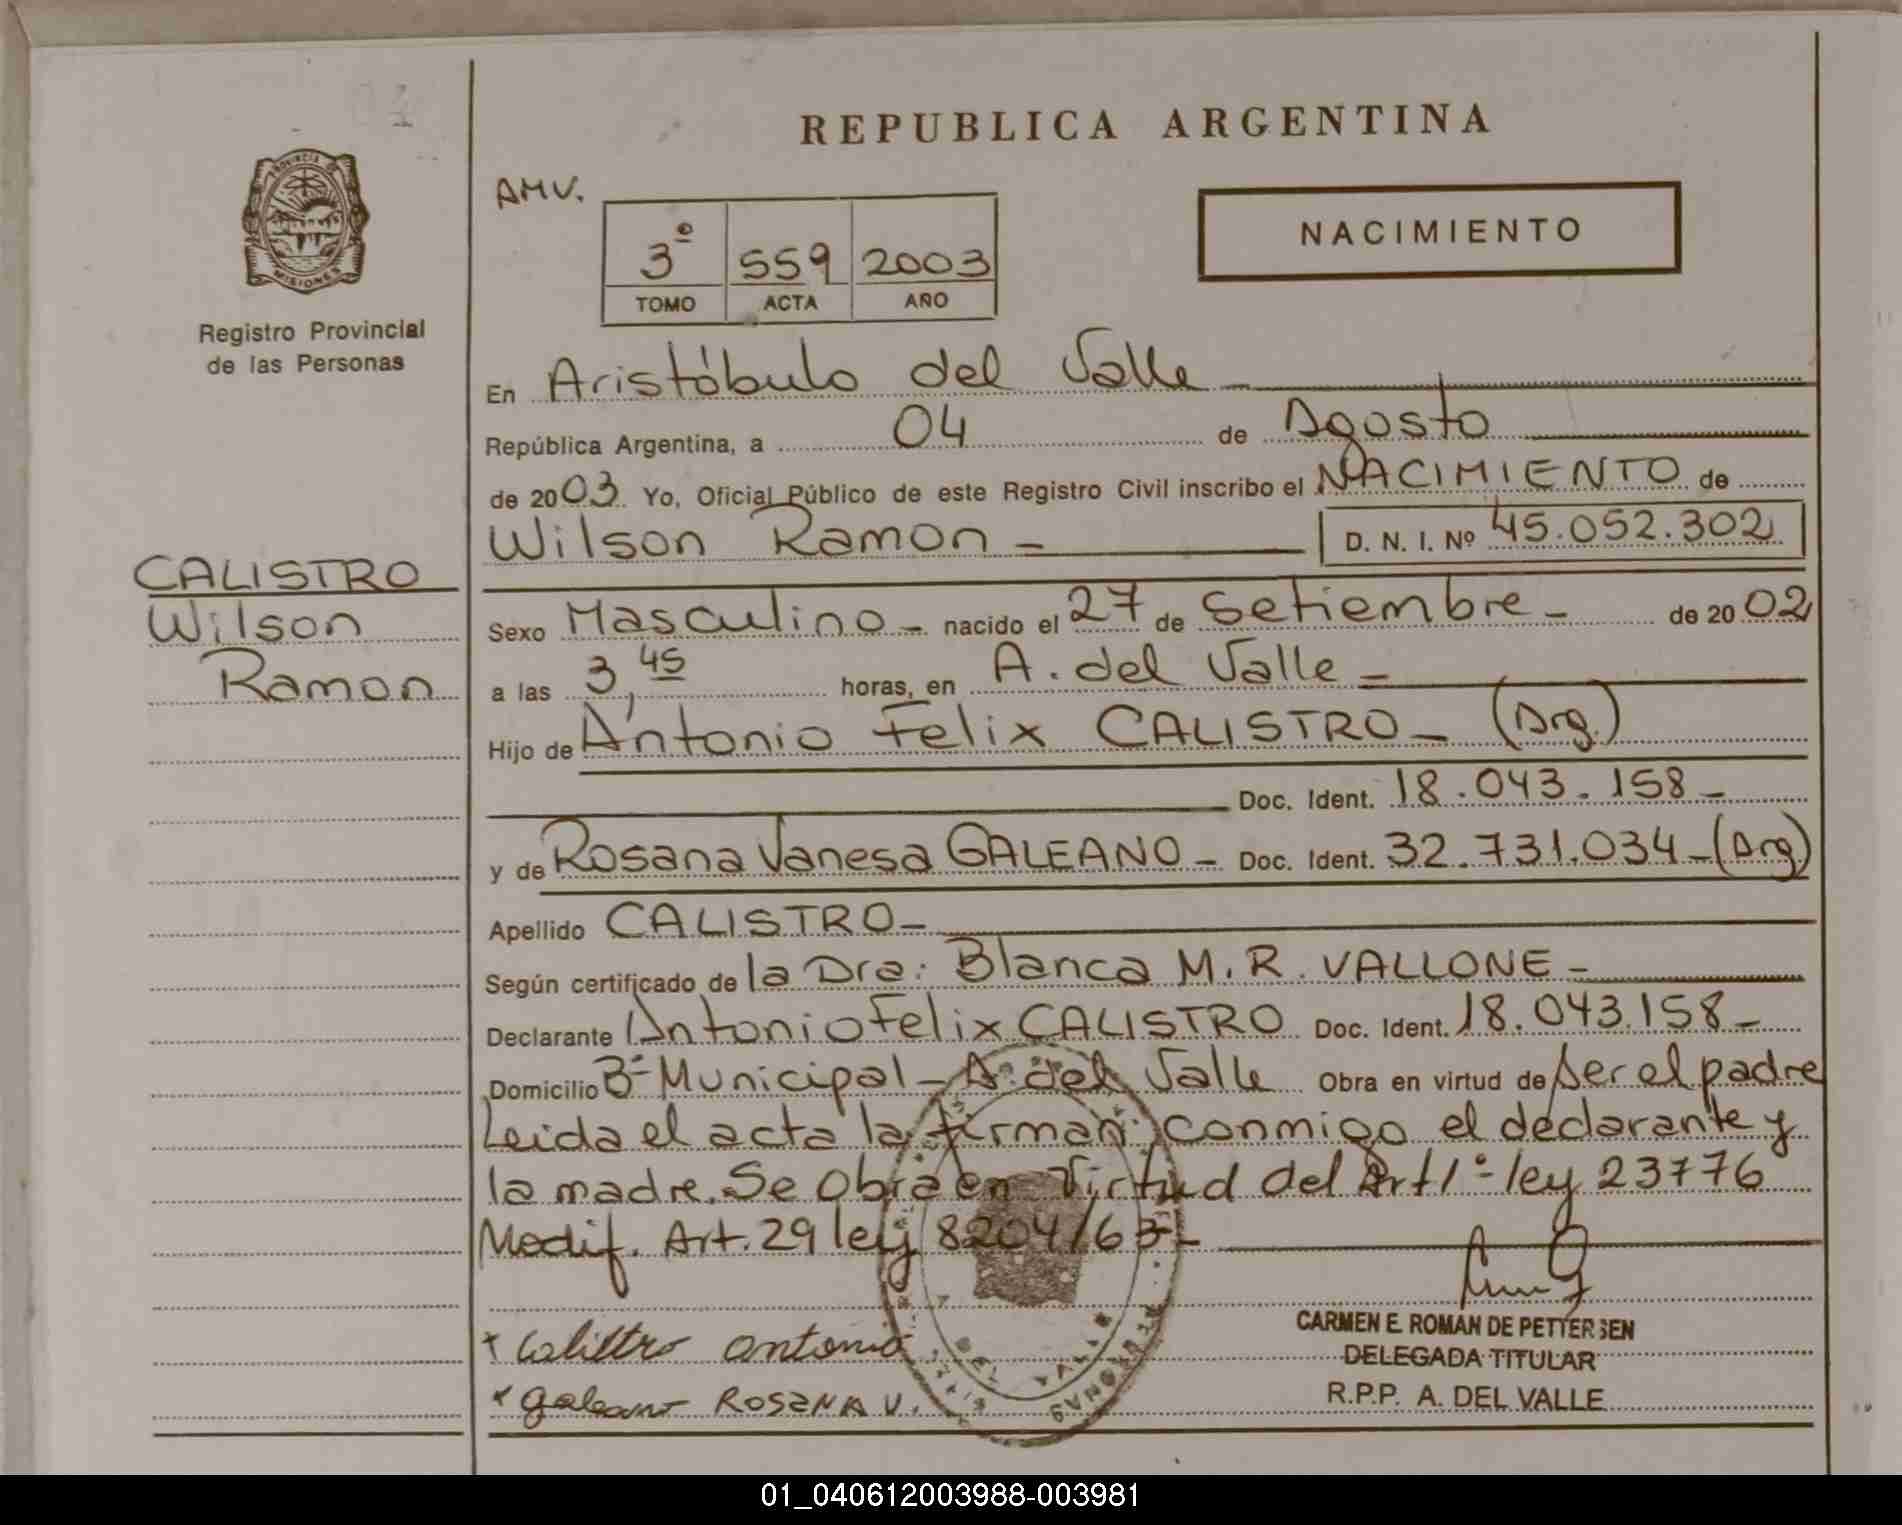 REPUBLICA ARGENTINA
AMV.
3º 559 2003
TOMO ACTA AÑO
NACIMIENTO
PROVINCIA DE MISIONES
Registro Provincial
de las Personas
CALISTRO
Wilson
Ramon
En Aristóbulo del Valle
República Argentina, a 04 de Agosto
de 2003 Yo, Oficial Público de este Registro Civil inscribo el NACIMIENTO de
Wilson Ramon - D. N. I. Nº 45.052.302
Sexo Masculino - nacido el 27 de Setiembre - de 2002
a las 3,45 horas, en A. del Valle -
Hijo de Antonio Felix CALISTRO - (Arg.)
Doc. Ident. 18.043.158 -
y de Rosana Vanesa GALEANO - Doc. Ident. 32.731.034 - (Arg)
Apellido CALISTRO -
Según certificado de la Dra: Blanca M. R. VALLONE -
Declarante Antonio Felix CALISTRO Doc. Ident. 18.043.158 -
Domicilio Bº Municipal - A. del Valle Obra en virtud de ser el padre
Leida el acta la firman conmigo el declarante y
la madre. Se obra en virtud del Art 1º ley 23776
Modif. Art. 29 ley 8204/63 -
CARMEN E. ROMAN DE PETTERSEN
DELEGADA TITULAR
R.P.P. A. DEL VALLE
+ Calistro Antonio
x galeano ROSANA V.
DEL VALLE
01_040612003988-003981